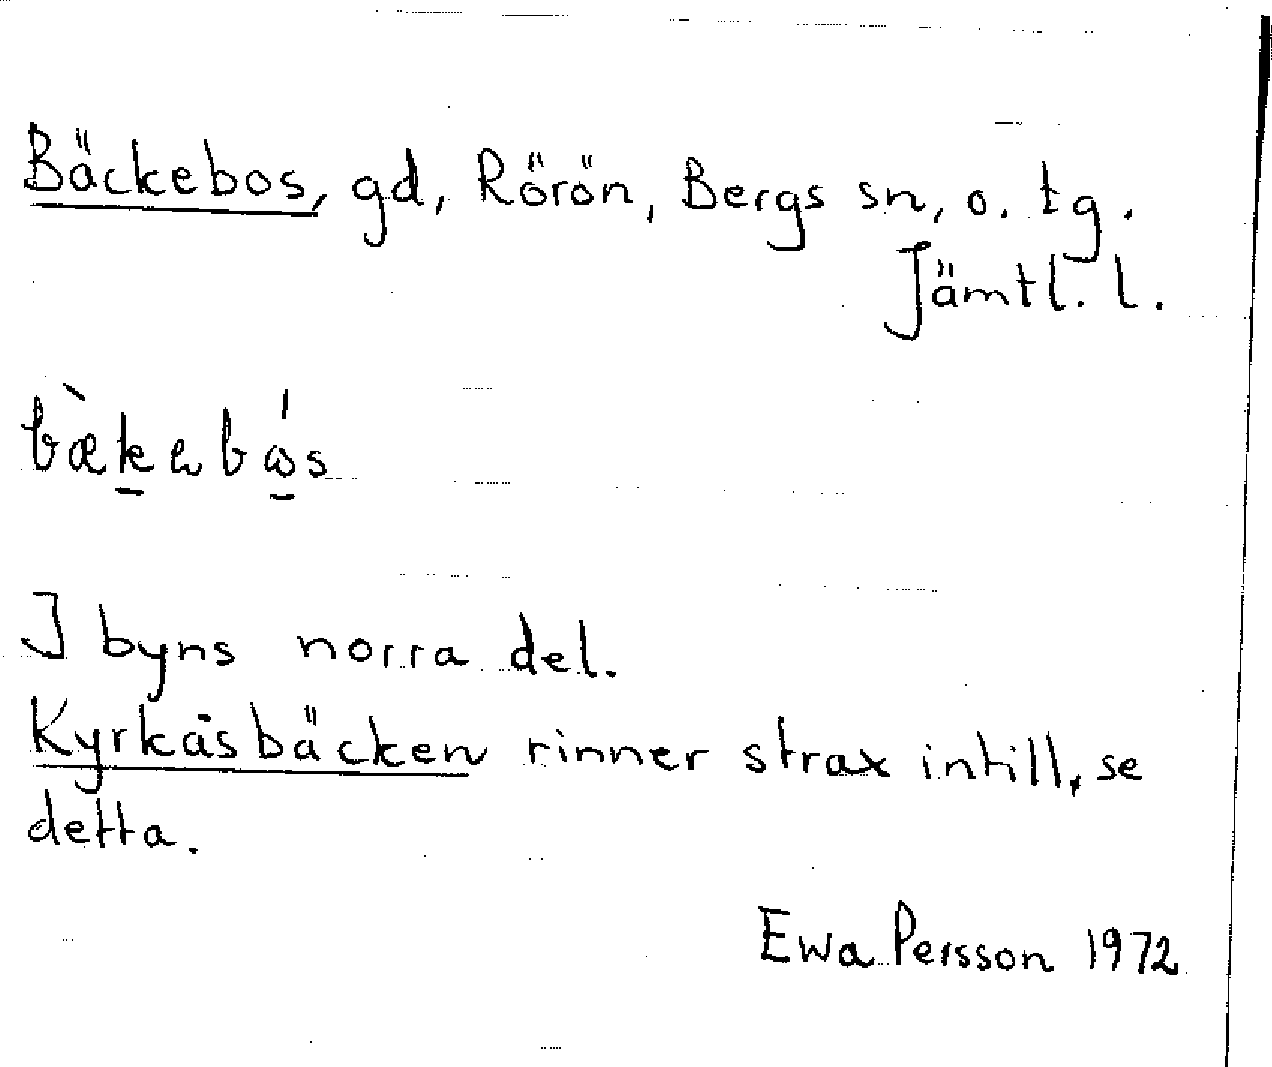 Bäckebos, gd, Rörön, Bergs sn, o. tg.
Jämtl. l.
bæ̀kebω̍s
I byns norra del.
Kyrkåsbäcken rinner strax intill, se
detta.
Ewa Persson 1972